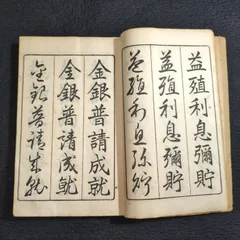 益殖利息彌貯
益殖利息彌貯
益殖利息彌貯
金銀普請成就
金銀普請成就
金銀普請成就